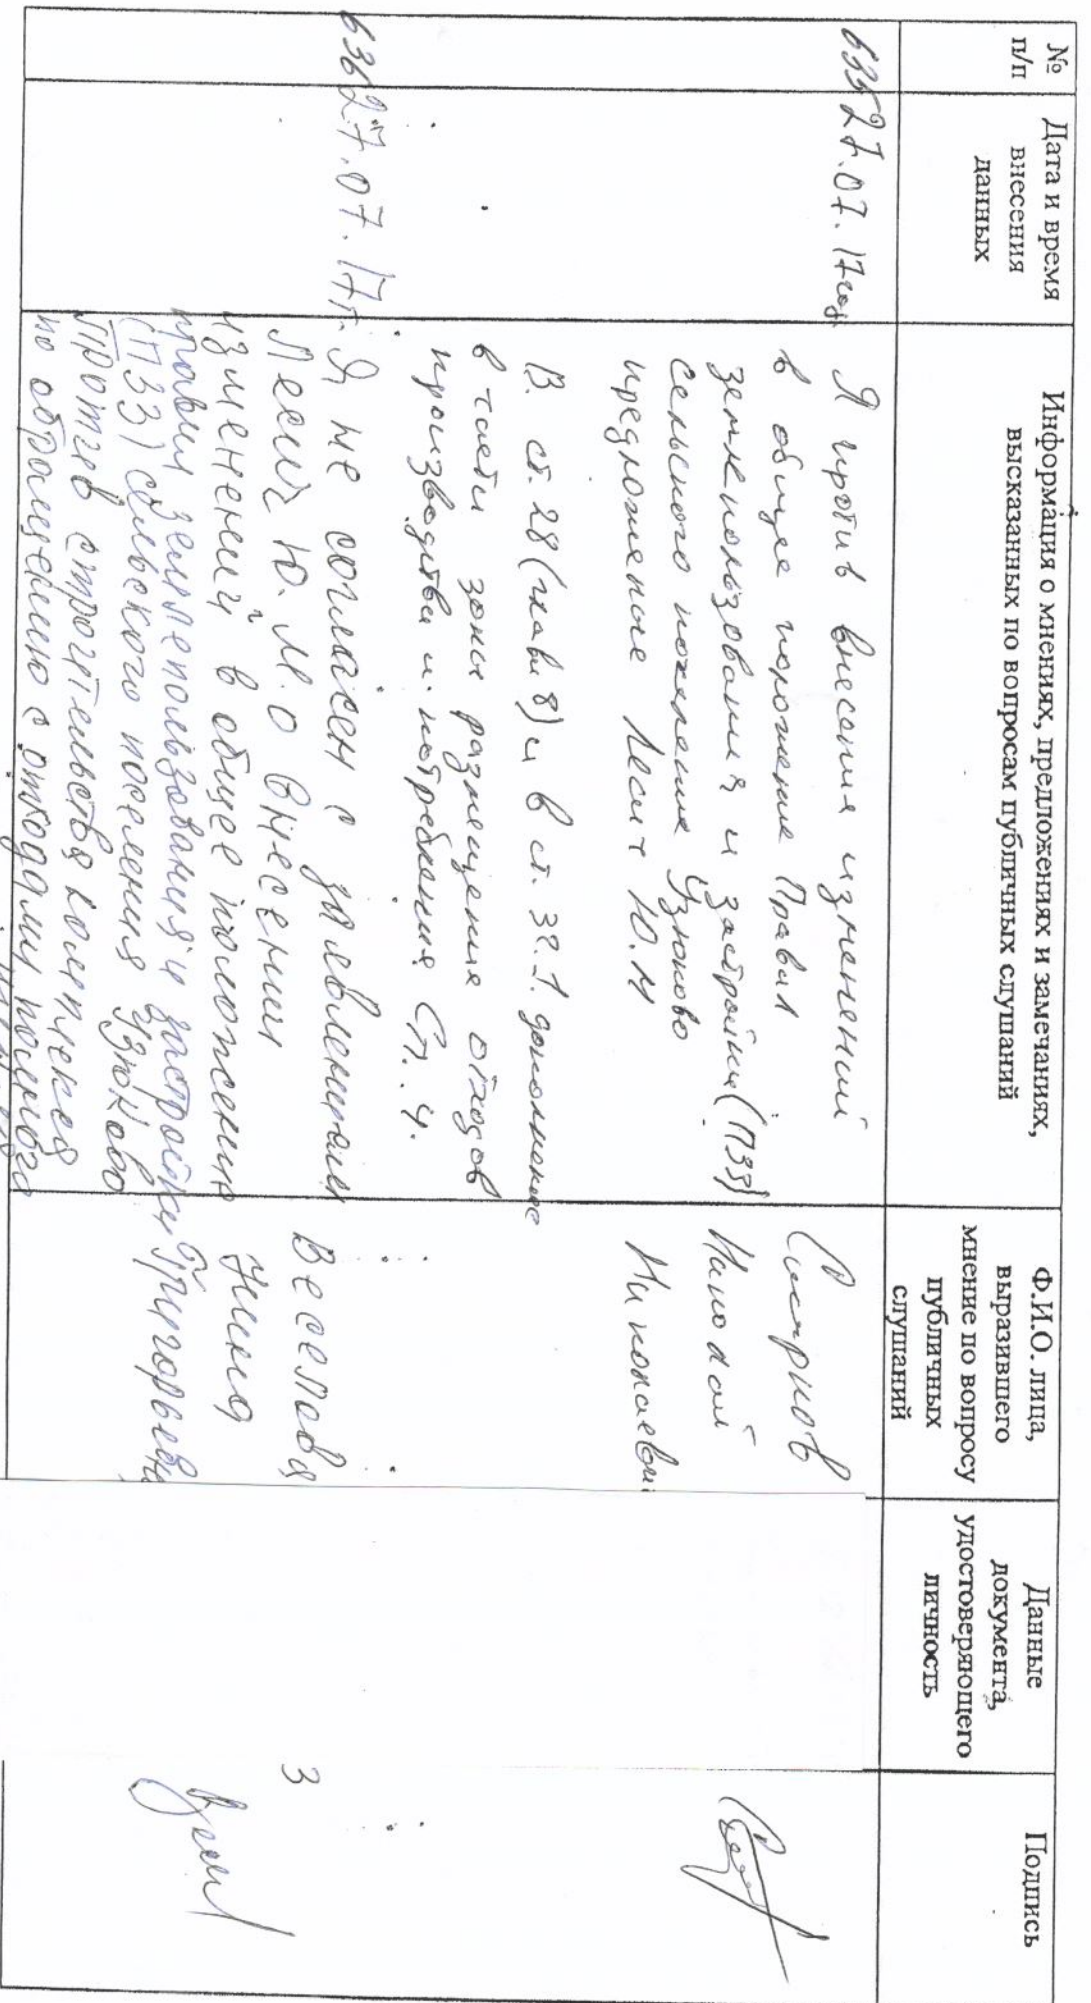 №
п/п
Дата и время
внесения
данных
Информация о мнениях, предложениях и замечаниях,
высказанных по вопросам публичных слушаний
Ф.И.О. лица,
выразившего
мнение по вопросу
публичных
слушаний
Данные
документа,
удостоверяющего
личность
Подпись
635
27.07.17год
Я против внесения изменений
в общее положение Правил
землепользования и застройки (ПЗЗ)
сельского поселение Узюково
предложенные Лесит Ю.М
В. ст. 28 (глава 8) и в ст. 32.1. дополнение
в части зоны размещение отходов
производства и. потребления Ст. 4.
Смирнов
Николай
Николаевич
636
27.07.17г.
Я, не согласен с
Лесит Ю.М. о внесении
изменений в общее положению
правил землепользования и застройки
(ПЗЗ) сельского поселения Узюково
Против строительства комплекса
по обращению с отходами полного
Веселова
Нина
Григорьевна
3